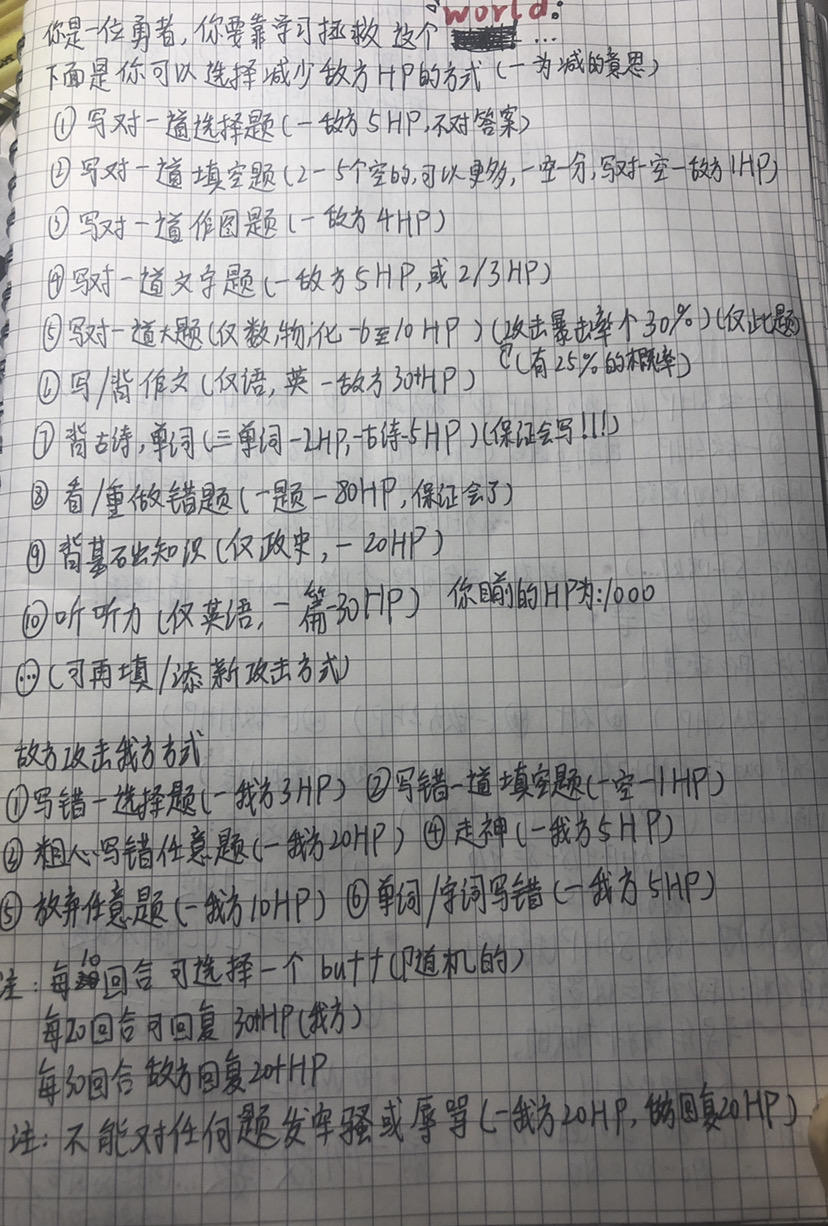 你是一位勇者,你要靠学习拯救 这个 "world:
...
下面是你可以选择减少敌方HP的方式(一为减的意思)
①写对一道选择题(一敌方5HP,不对答案)
②写对一道填空题(2-5个空的,可以更多,一空一分,写对一空一敌方1HP)
③写对一道作图题(一敌方4HP)
④写对一道文字题(一敌方5HP,或2/3HP)
⑤写对一道大题(仅数,物,化 -6至10HP)(攻击暴击率↑30%)(仅此题)
(有25%的概率)
⑥写/背作文(仅语,英 一敌方30+HP)
⑦背古诗,单词(三单词-2HP,一古诗-5HP)(保证会写!!!)
⑧看/重做错题(一题-80HP,保证会了)
⑨背基础知识(仅政史,-20HP)
⑩听听力(仅英语,一篇-30HP) 你目前的HP为:1000
(可再填/添新攻击方式)
敌方攻击我方方式
①写错一选择题(一我方3HP) ②写错一道填空题(一空-1HP)
③粗心写错任意题(一我方20HP) ④走神(一我方5HP)
⑤放弃任意题(一我方10HP) ⑥单词/字词写错(一我方5HP)
注:每10回合可选择一个butt(随机的)
每20回合可回复30+HP(我方)
每30回合敌方回复20+HP
注:不能对任何题发牢骚或辱骂(一我方20HP,敌方回复20HP)